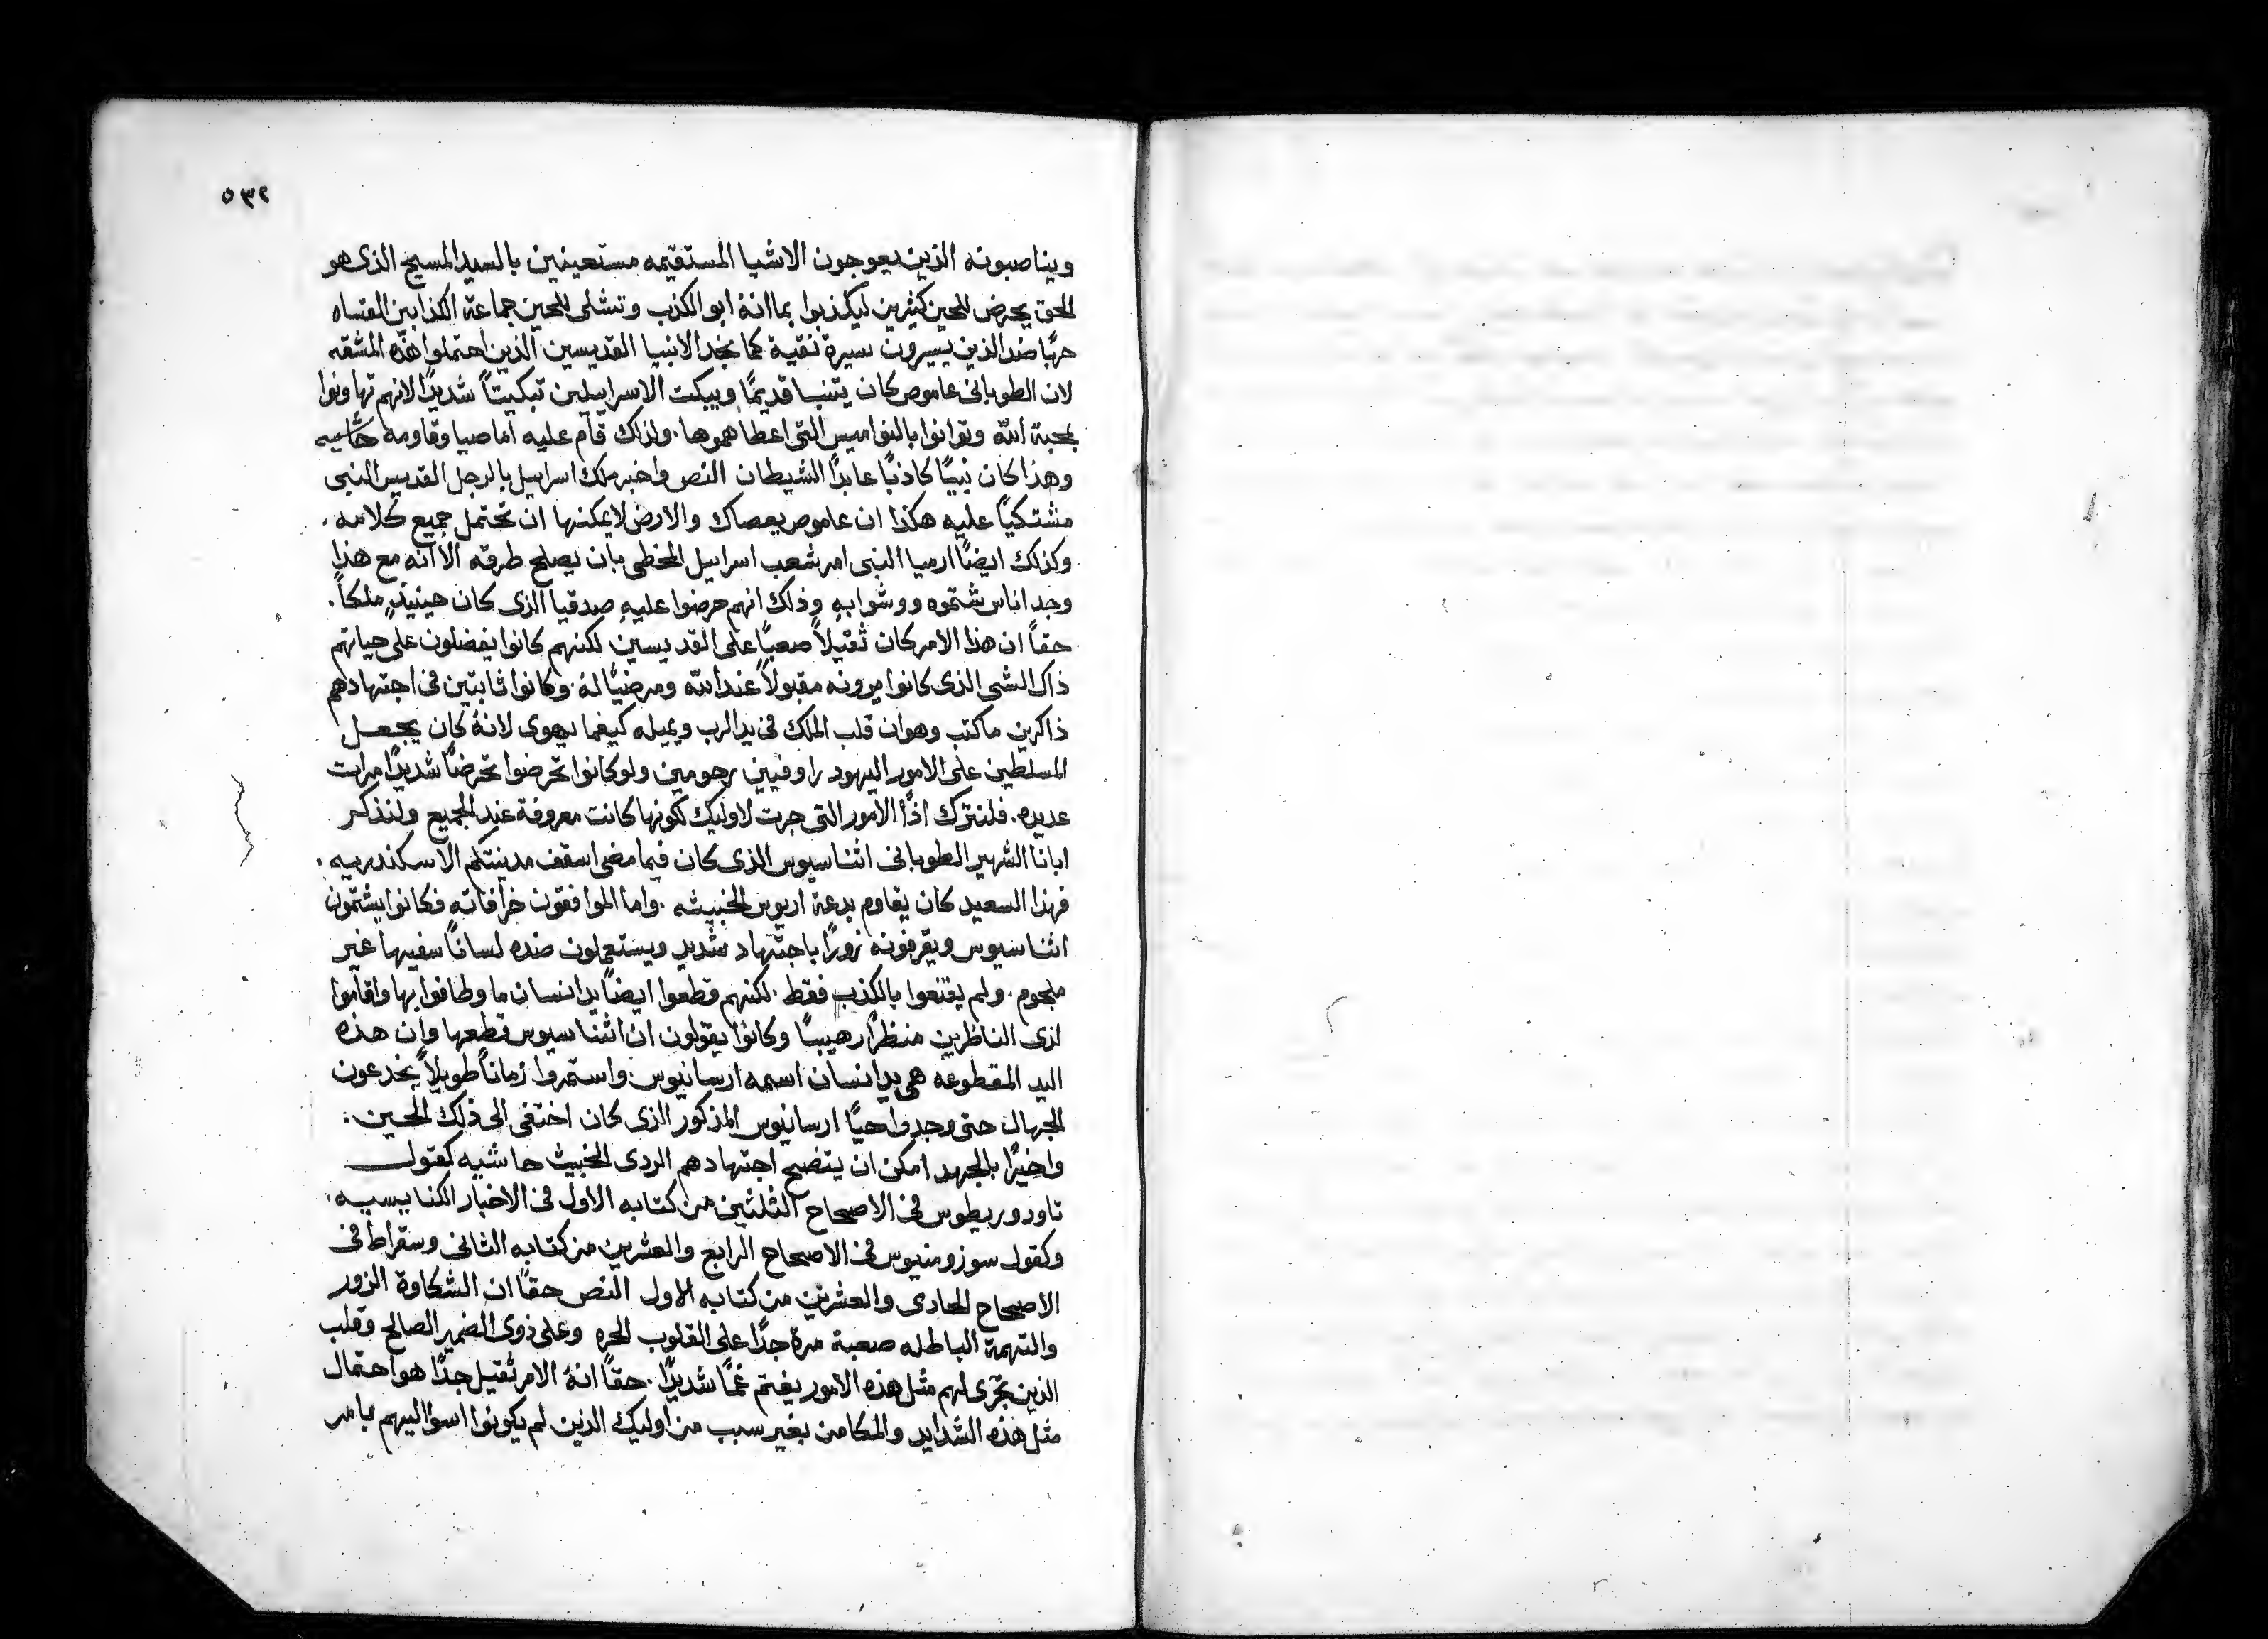 ٥٣٢
ويناصبونه الذين يعوجون الاشيا المستقيمه مستعينين بالسيد المسيح الذى هو
الحق يحرض للحين كثيرين ليكذبوا بما انهُ ابو الكذب وتشلى للحين جماعة الكذابين القساه
حربًا ضد الذين يسيرون سيرة نقية كما نجد الانبيا القديسين الذين احتملوا هذه المشقه
لان الطوبانى عاموص كان يتنبا قديمًا ويبكت الاسراييلين تبكيتًا شديدًا لانهم تهاونوا
بمحبة الله وتوانوا بالنواميس التى اعطاهموها. ولذلك قام عليه اماصيا وقاومه حاشيه
وهذا كان نبيًا كاذبًا عابدًا الشيطان النص واخبر ملك اسراييل بالرجل القديس النبى
مشتكيًا عليه هكذا ان عاموص يعصاك والارض لا يمكنها ان تحتمل جميع كلامه.
وكذلك ايضًا ارميا النبى امر شعب اسراييل المخطى بان يصلح طرقه الا انه مع هذا
وجد اناس شتموه ووشوا بهِ وذلك انهم حرضوا عليهِ صدقيا الذى كان حينيذٍ ملكاً.
حقاً ان هذا الامر كان ثقيلاً صعبًا على القديسين لكنهم كانوا يفضلون على حياتهم
ذاك الشى الذى كانوا يرونه مقبولاً عند الله ومرضيًا لهُ. وكانوا ثابتين فى اجتهادهم
ذاكرين ما كتب وهو ان قلب الملك فى يد الرب ويميله كيفما يهوى لانهُ كان يجعل
المسلطين على الامور اليهود راوفيين رحومين ولو كانوا تحرضوا تحرضًا شديدًا مرات
عديده. فلنترك اذًا الامور التى جرت لاوليك لكونها كانت معروفة عند الجميع ولنذكر
ابانا الشهير الطوبانى اثناسيوس الذى كان فيما مضى اسقف مدينتكم الاسكندريه.
فهذا السعيد كان يقاوم بدعة اريوس الخبيثه. واما الموافقون خرافاته فكانوا يشتمون
اثناسيوس ويقرفونه زورًا باجتهاد شديد ويستعملون ضده لسانًا سفيها غير
ملجوم. ولم يقتنعوا بالكذب فقط. لكنهم قطعوا ايضًا يد انسان ما وطافوا بها واقاموا
لذى الناظرين منظرًا رهيبًا وكانوا يقولون ان اثناسيوس قطعها وان هذه
اليد المقطوعه هى يد انسان اسمه ارسانيوس. واستمروا زمانًا طويلاً يخدعون
الجهال حتى وجدوا حيًا ارسانيوس المذكور الذى كان اختفى الى ذلك الحين.
واخيرًا بالجهد امكن ان يتضح اجتهادهم الردى الخبيث حاشيه كقول
تاودوريطوس فى الاصحاح الثلثين من كتابه الاول فى الاخبار الكنايسيه.
وكقول سوزومنيوس فى الاصحاح الرابع والعشرين من كتابه الثانى وسقراط فى
الاصحاح الحادى والعشرين من كتابه الاول النص حقًا ان الشكاوة الزور
والتهمة الباطله صعبة مرة جدًا على القلوب الحره وعلى ذوى الضمير الصالح وقلب
الذين تجرى لهم مثل هذه الامور يغتم غمًا شديدًا. حقًا انهُ الامر ثقيل جدًا هو احتمال
مثل هذه الشدايد والمكامن بغير سبب من اوليك الذين لم يكونوا اسوا اليهم بامر